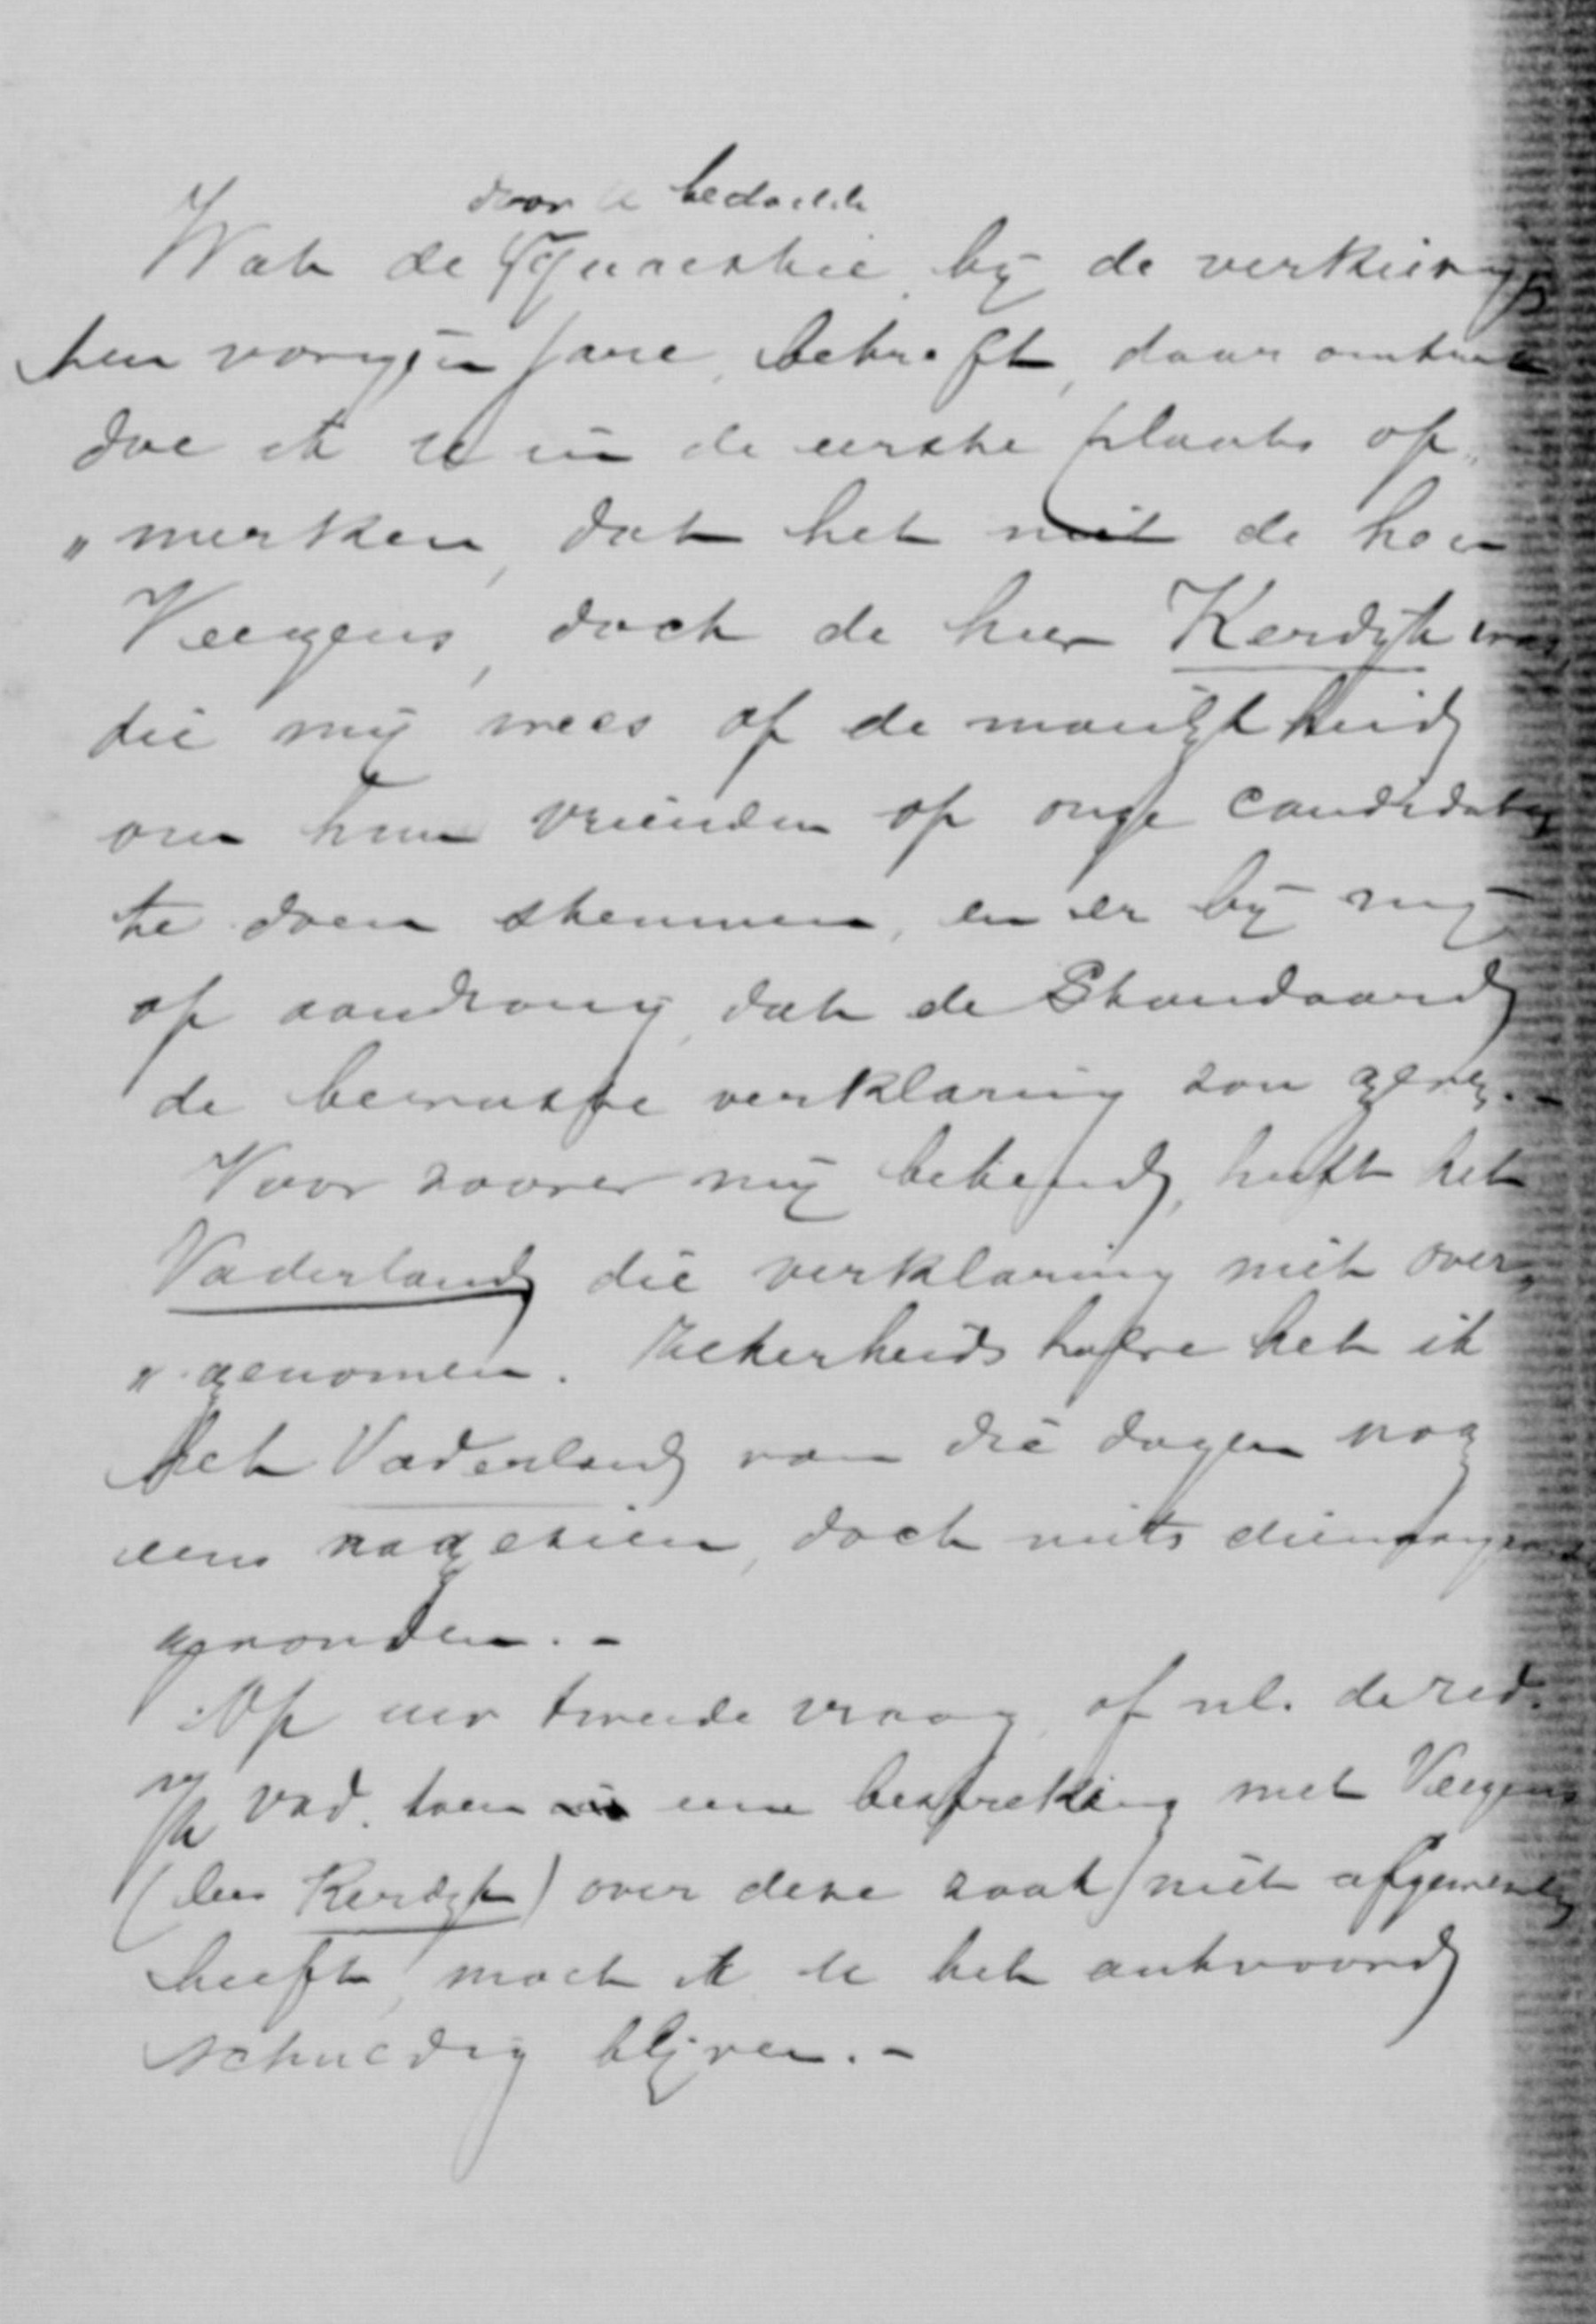 door U bedoelde
Wat de Quaestie by de verkiezing
ten vorigen jare, betreft, daar omtrent
doe ik U in de eerste plaats op„
„merken, dat het niet de heer
Veegens, doch de heer Kerdyk was,
die my wees op de moeilykheid
om hun vrienden op onze candidaten
te doen stemmen, en er by my
op aandrong, dat de Standaard
de bewuste verklaring zou geven.-
Voor zoover my bekend, heeft het
Vaderland die verklaring niet over„
„genomen. Zekerheidshalve heb ik
het Vaderland van die dagen nog
eens nagezien, doch niets dienaangaande
gevonden.-
Op uw tweede vraag, of nl. de red.
v/h Vad. toen eene bespreking met Veegens
(lees Kerdyk) over deze zaak niet afgewend
heeft, moet ik U het antwoord
schuldig blyven.-